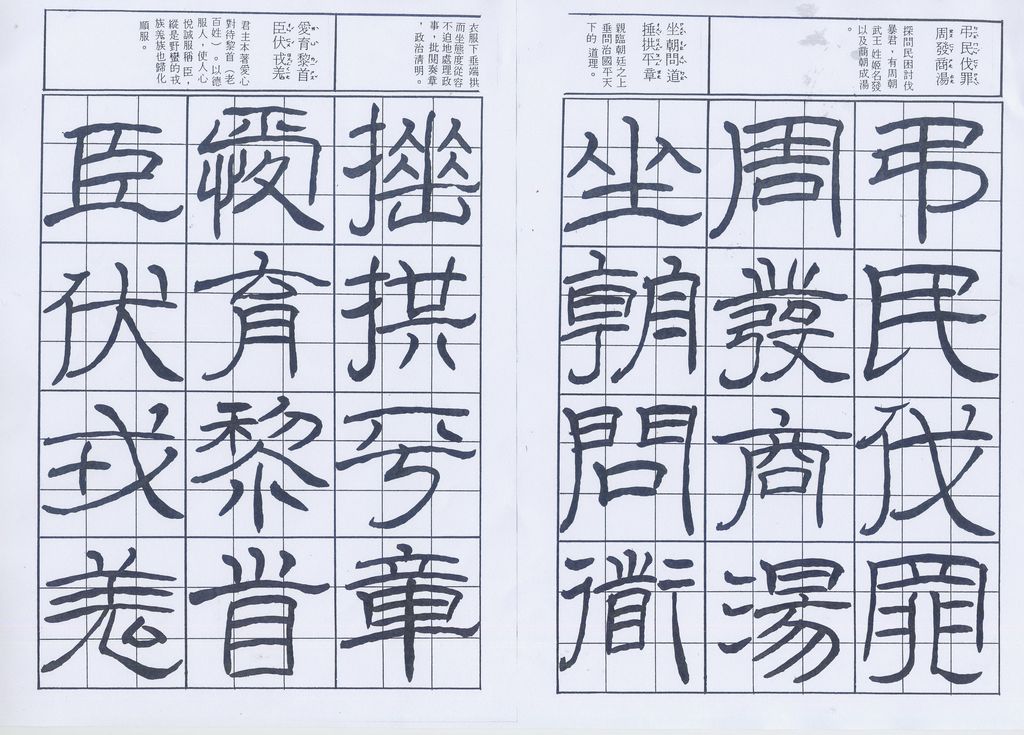 弔民伐罪
周發商湯
探問民困討伐
暴君，有周朝
武王姓姬名發
以及商朝成湯
坐朝問道
捶拱平章
親臨朝廷之上
垂問治國平天
下的 道理。
弔民伐罪
周發商湯
坐朝問道
衣服下垂端拱
而坐態度從容
不迫地處理政
事，批閱奏章
，政治清明。
愛育黎首
臣伏戎羌
君主本著愛心
對待黎首（老
百姓）。以德
服人，使人心
悅誠服稱 臣，
縱是野蠻的戎
族羌族也歸化
順服。
捶拱平章
愛育黎首
臣伏戎羌